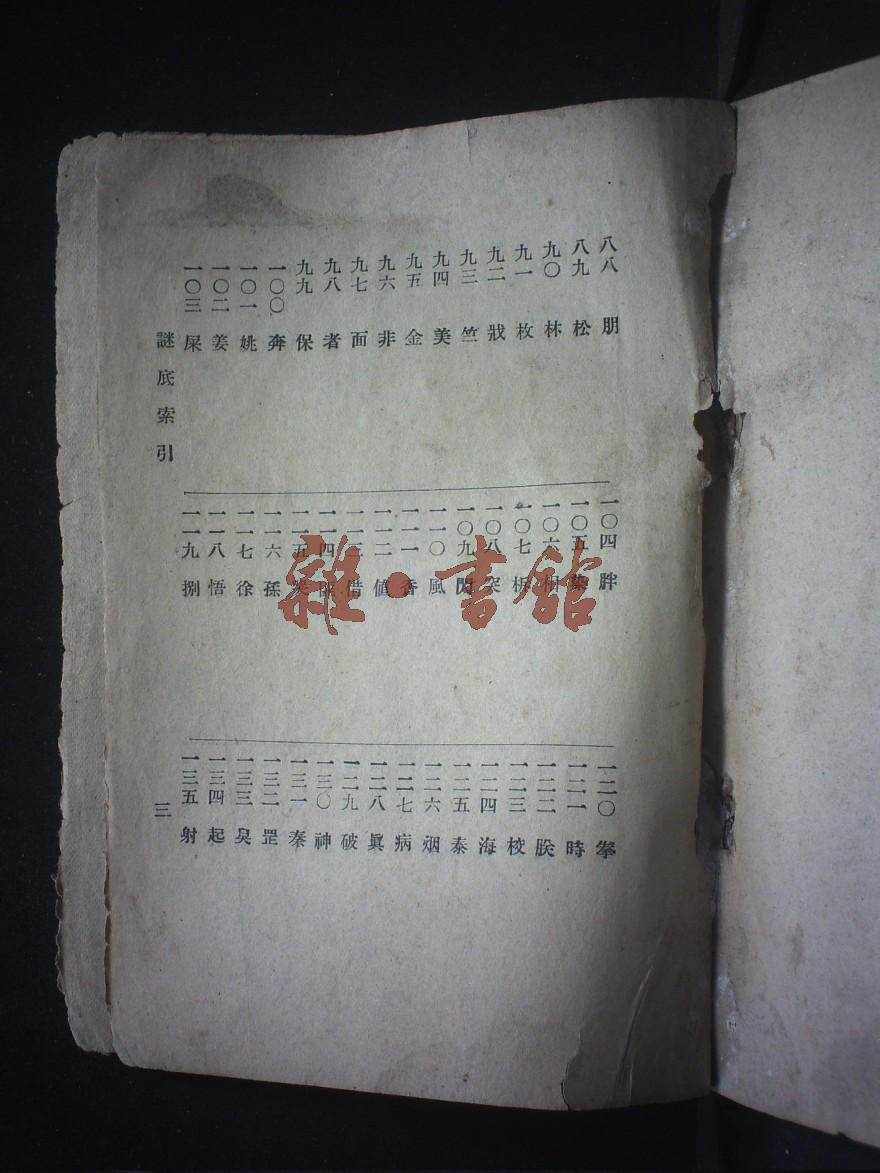 八八 朋
八九 松
九〇 林
九一 枚
九二 戕
九三 竺
九四 美
九五 金
九六 非
九七 面
九八 者
九九 保
一〇〇 奔
一〇一 姚
一〇二 姜
一〇三 屎
一〇四 胖
一〇五 染
一〇六
一〇七
一〇八 突
一〇九 閃
一一〇 風
一一一 香
一一二 值
一一三 借
一一四
一一五
一一六 孫
一一七 徐
一一八 悟
一一九 捌
一二〇 拳
一二一 時
一二二 朕
一二三 校
一二四 海
一二五 泰
一二六 烟
一二七 病
一二八 眞
一二九 破
一三〇 神
一三一 秦
一三二 罡
一三三 臭
一三四 起
一三五 射
謎底索引
三
雜·書館